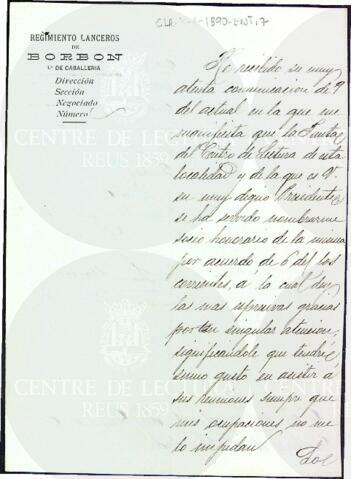 REGIMIENTO LANCEROS
DE
BORBON
4º DE CABALLERIA
Dirección
Sección
Negociado
Número
He recibido su muy
atenta comunicacion de 9
del actual en la que me
manifiesta que la Junta
del Centro de Lectura de esta
localidad y de la que es V.
su muy digno Presidente
se ha servido nombrarme
socio honorario de la misma
por acuerdo de 6 del los
corrientes, á la cual doy
las mas espresivas gracias
por tan singular atencion,
significandole que tendré
sumo gusto en asistir á
sus reuniones siempre que
mis ocupaciones no me
lo impedan.
CENTRE DE LECTURA
REUS 1859
CENTRE DE LECTURA
REUS 1859